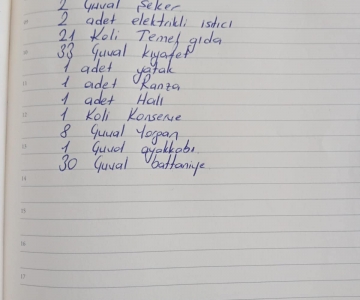 2 Çuval Şeker
2 adet elektrikli ısıtıcı
21 Koli Temel gıda
33 Çuval kıyafet
1 adet yatak
1 adet Ranza
1 adet Halı
1 Koli Konserve
8 Çuval Yorgan
1 Çuval ayakkabı
30 Çuval battaniye
11
12
13
14
15
16
17